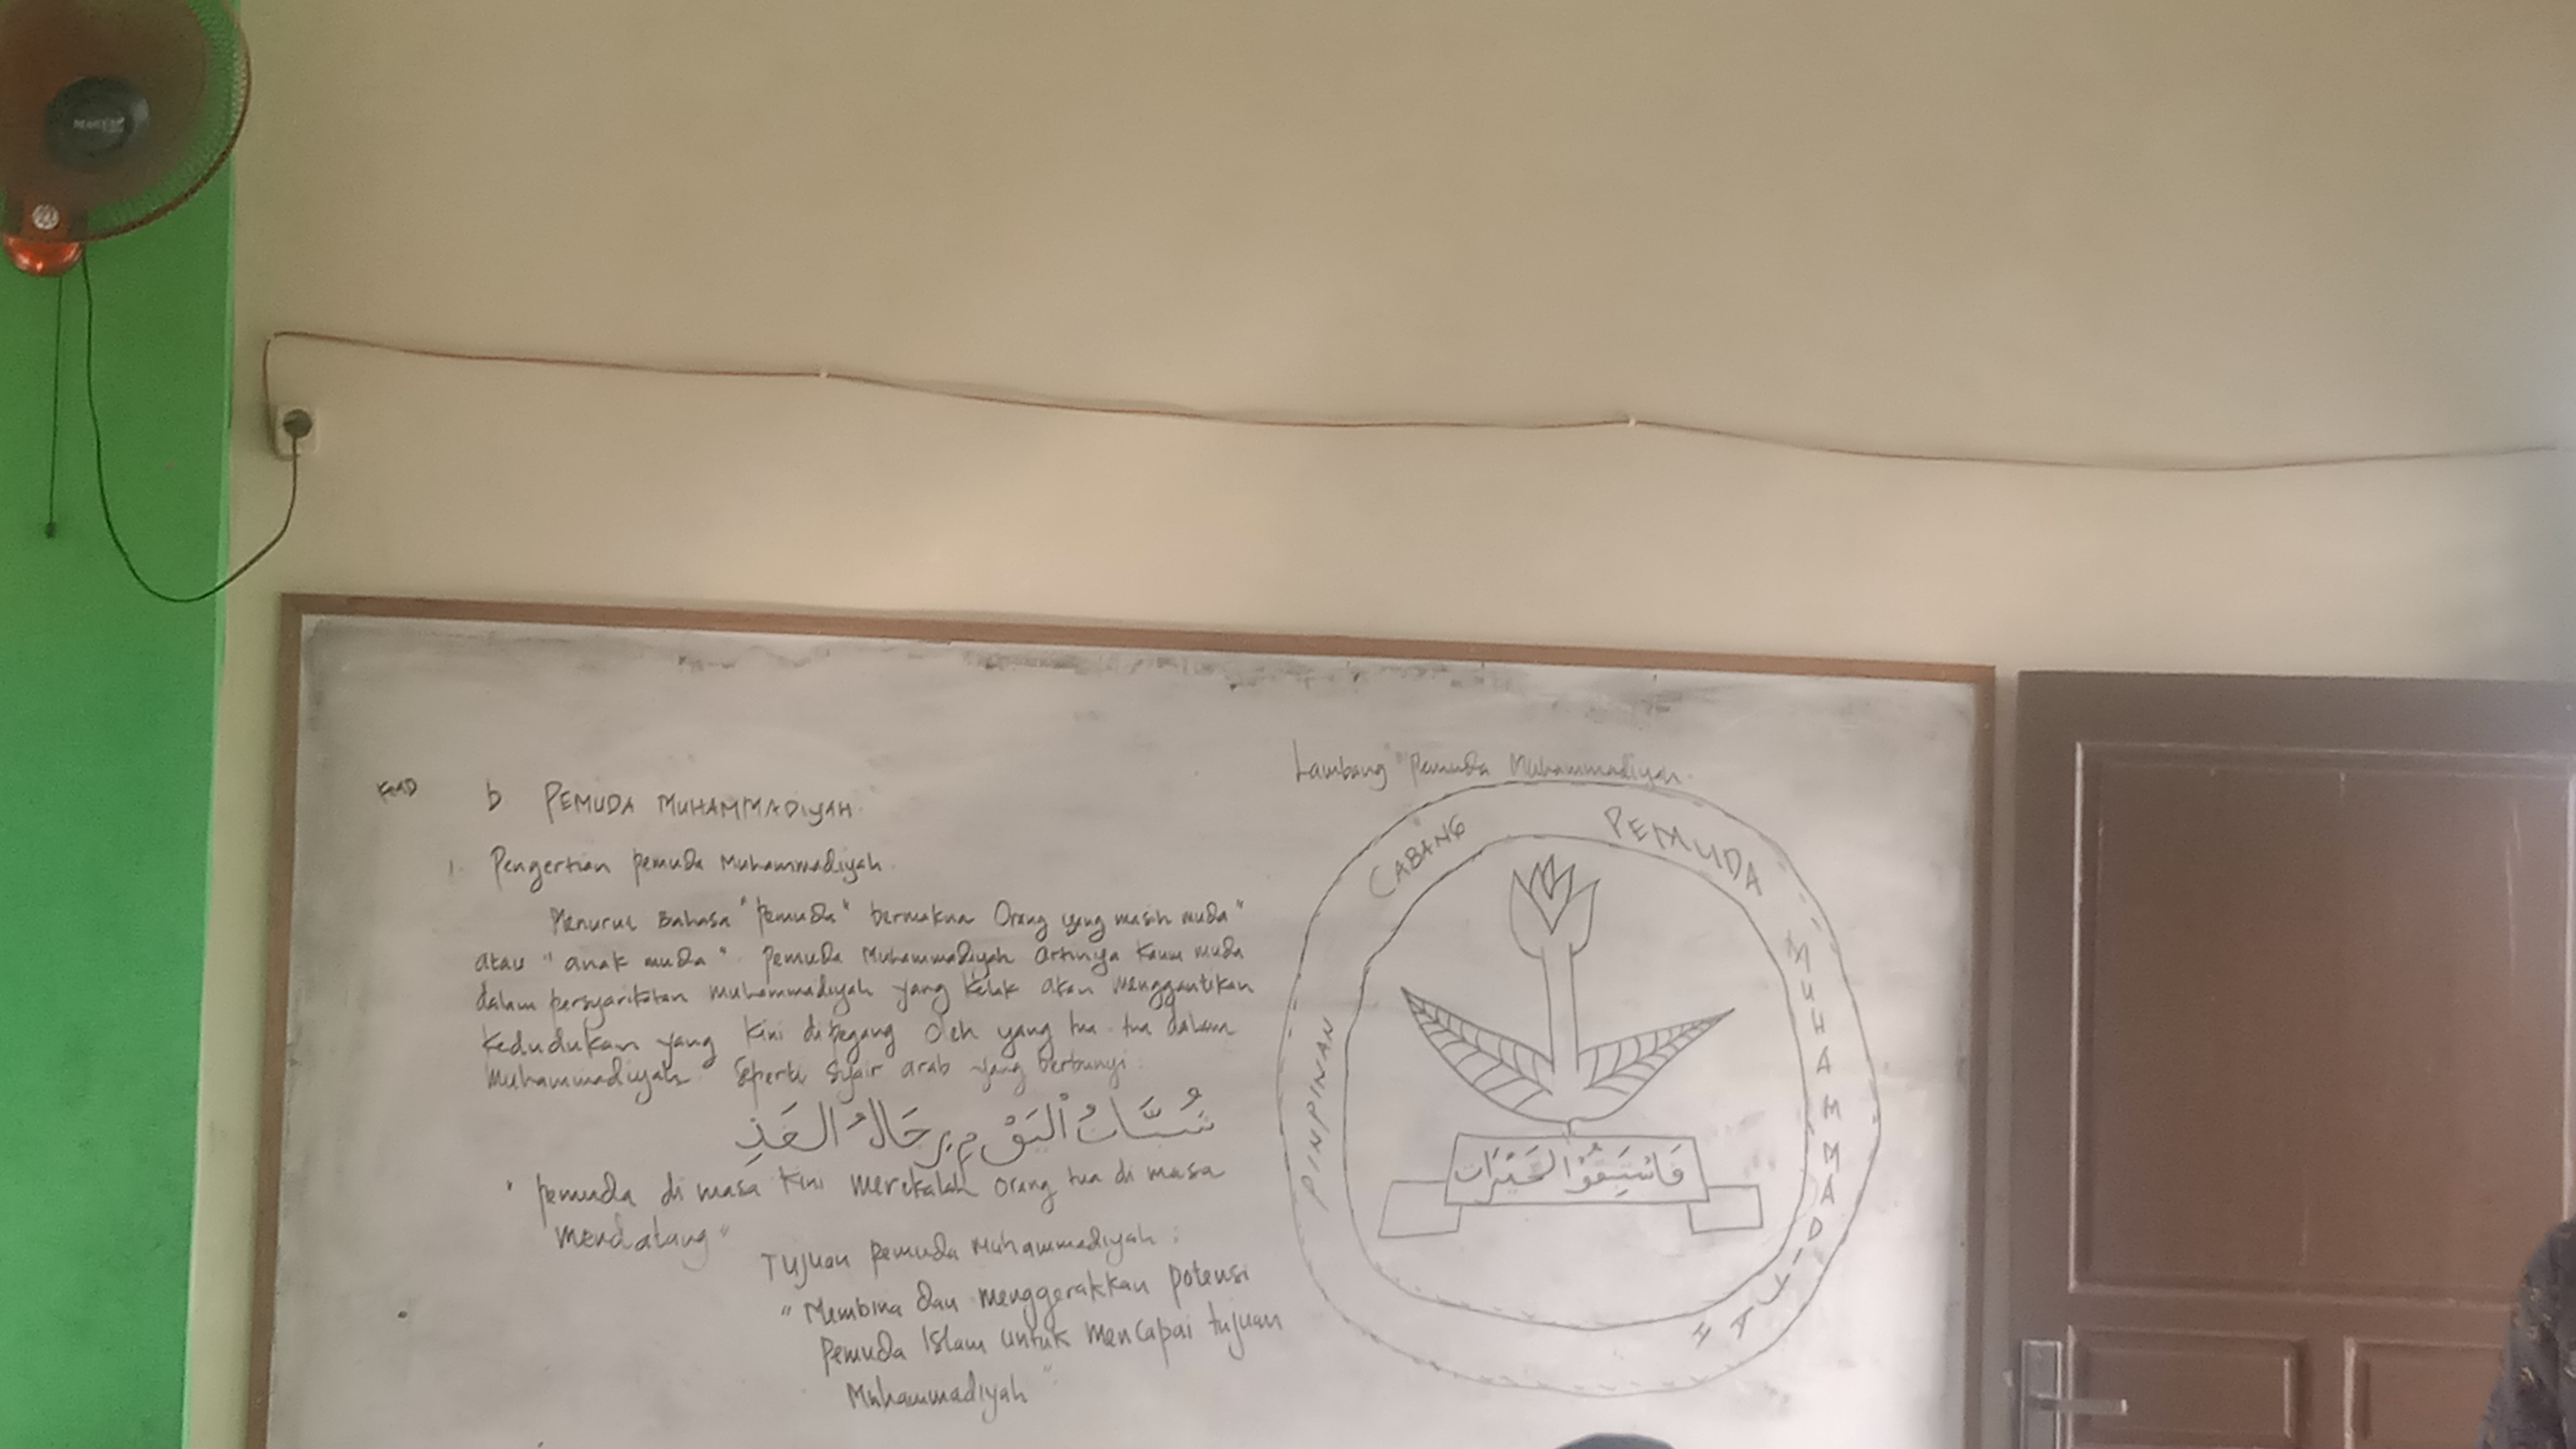 b PEMUDA MUHAMMADIYAH
1. Pengertian pemuda Muhammadiyah
Menurut Bahasa "Pemuda" bermakna Orang yang masih muda"
atau "anak muda". Pemuda Muhammadiyah artinya kaum muda
dalam persyarikatan Muhammadiyah yang kelak akan menggantikan
kedudukan yang kini dipegang oleh yang tua-tua dalam
Muhammadiyah" Seperti Syair arab yang berbunyi:
شُبَّانُ الْيَوْمِ رِجَالُ الْغَدِ
"pemuda di masa kini merekalah orang tua di masa
mendatang"
Tujuan Pemuda Muhammadiyah :
"Membina dan menggerakkan potensi
Pemuda Islam untuk mencapai tujuan
Muhammadiyah"
Lambang "Pemuda Muhammadiyah.
PINPINAN CABANG PEMUDA MUHAMMADIYAH
فَاسْتَبِقُوا الْخَيْرَاتِ